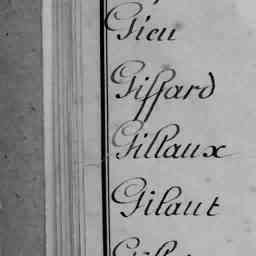 Gieu
Giffard
Gillaux
Gilaut